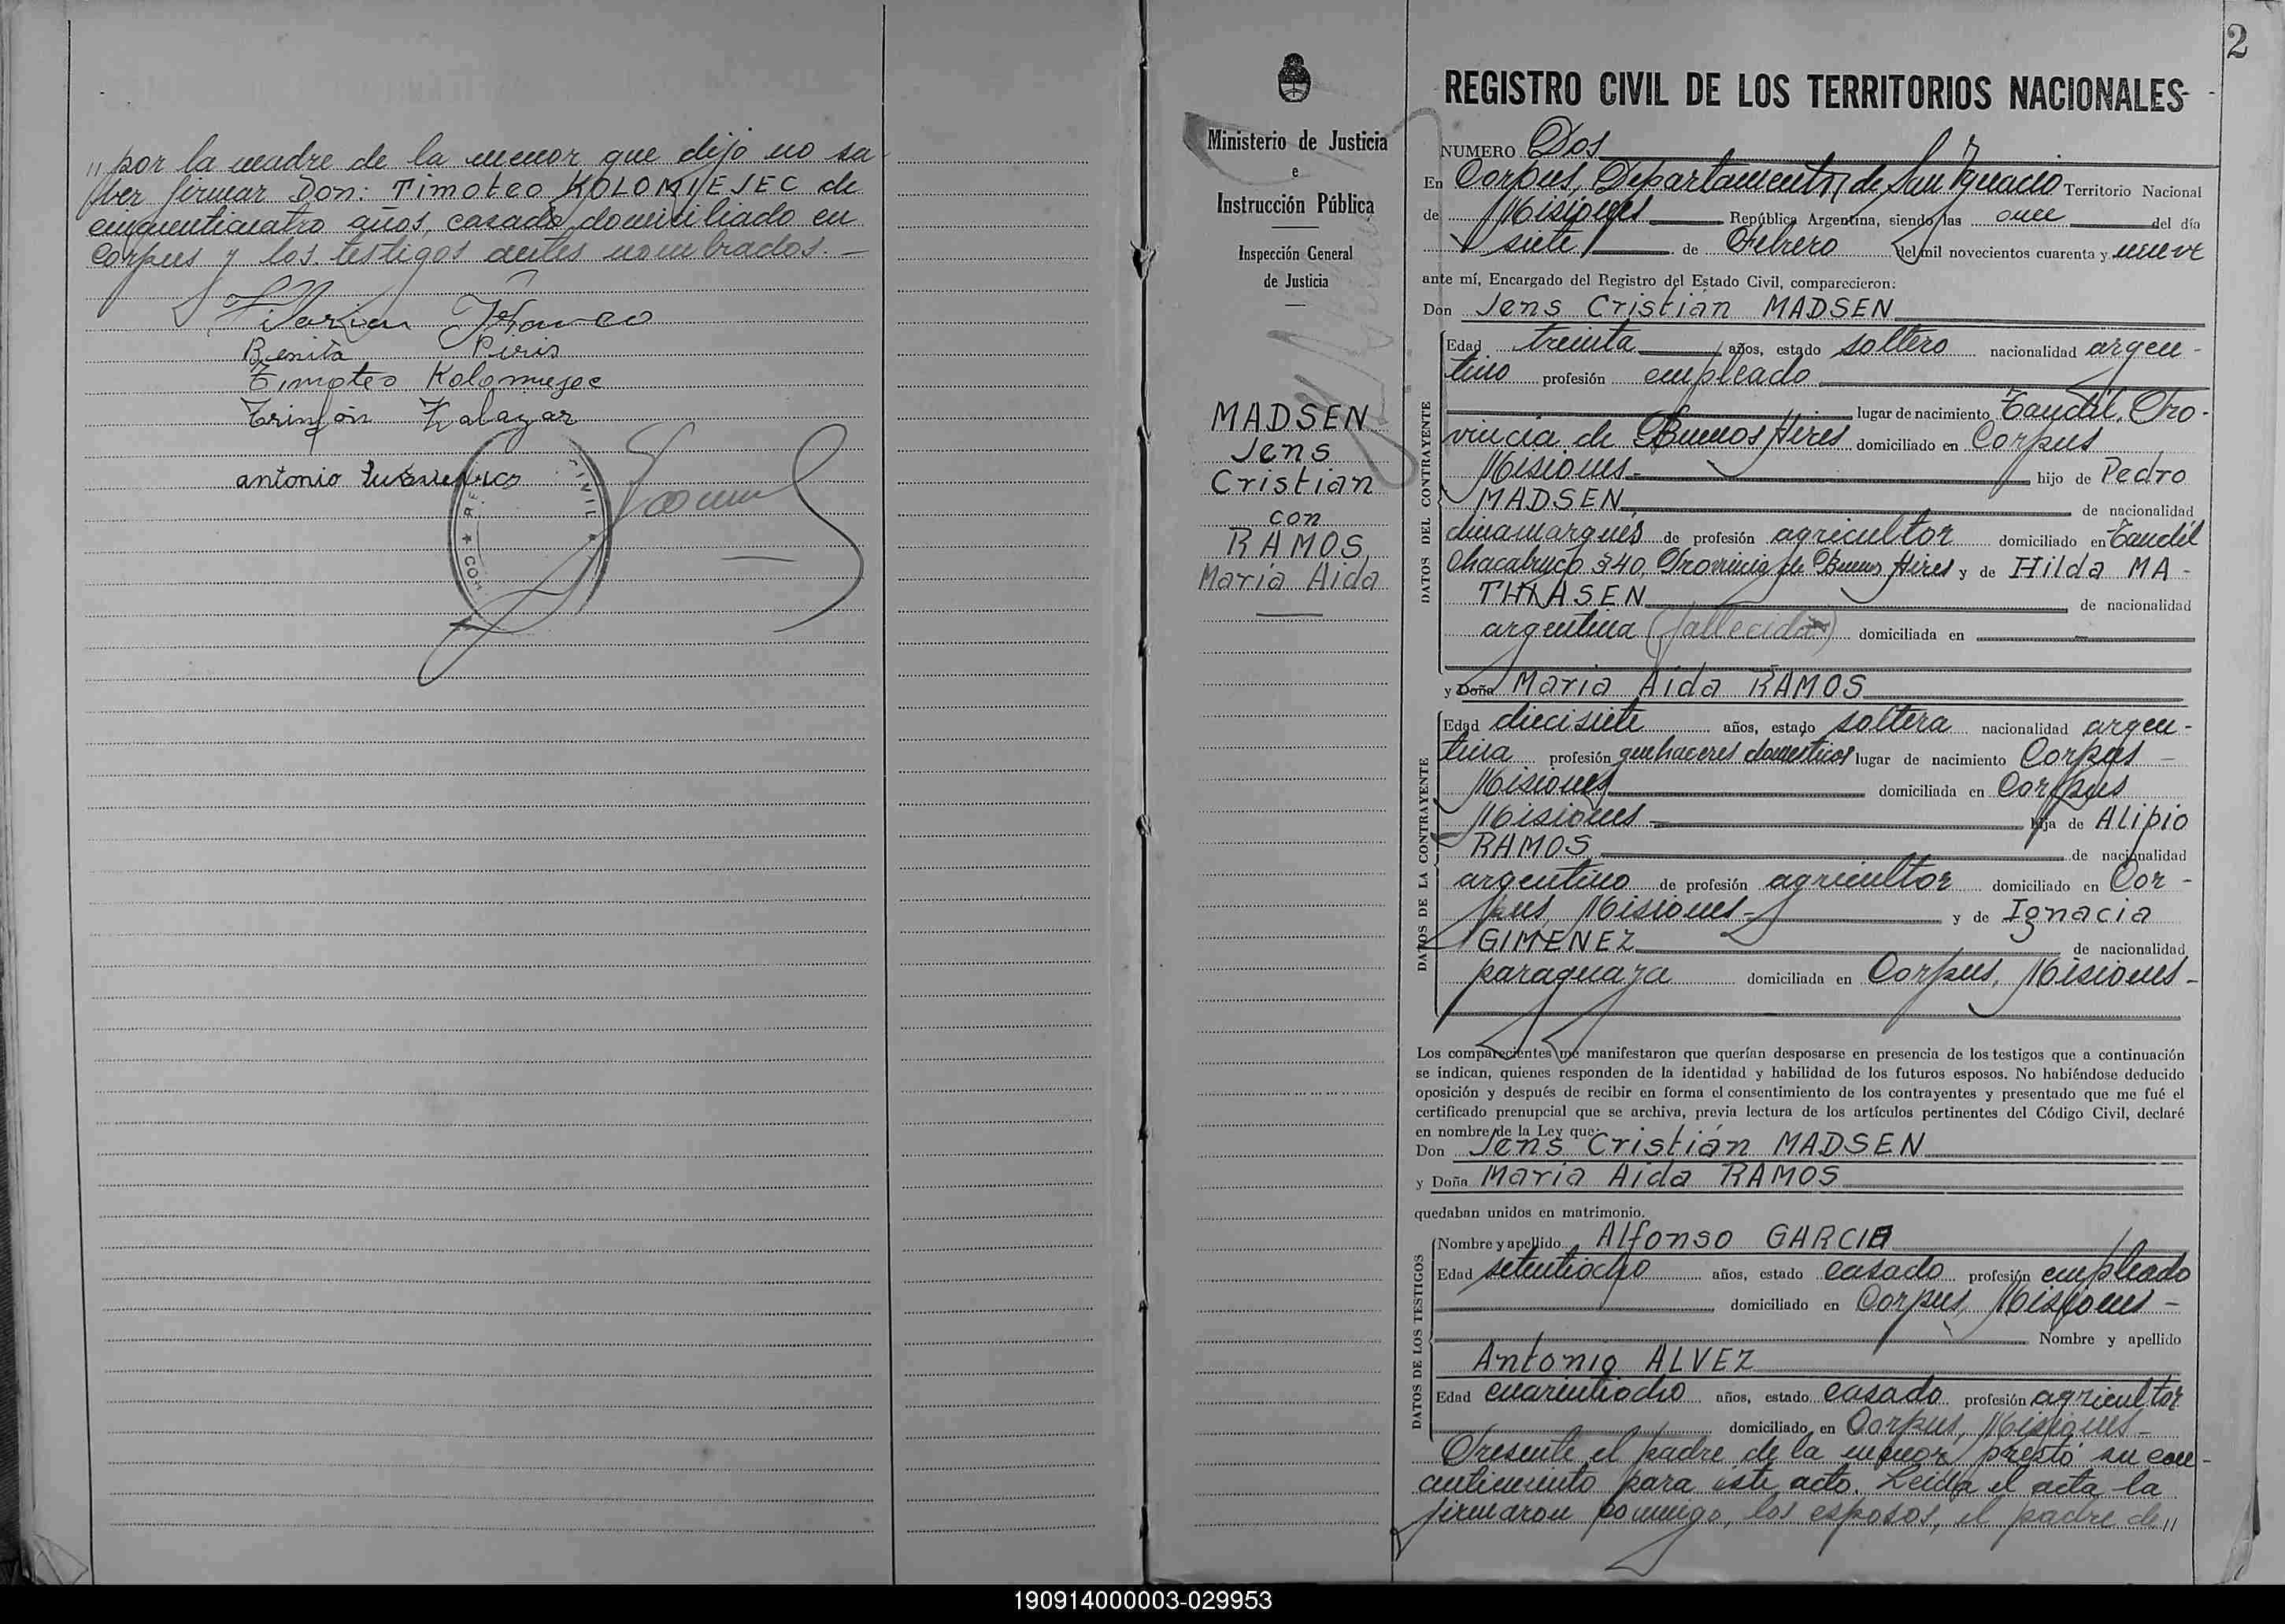 " por la madre de la menor que dijo no sa-
ber firmar Don: Timoteo KOLOMIEJEC de
cinquenticuatro años, casado domiciliado en
Corpus y los testigos antes nombrados.-
Benita Piris
Timoteo Kolomiejec
antonio
2
REGISTRO CIVIL DE LOS TERRITORIOS NACIONALES
Ministerio de Justicia
e
Instrucción Pública
Inspección General
de Justicia
MADSEN
Jens
Cristián
con
RAMOS,
María Aida
NUMERO Dos
En Corpus, Departamento de San Ignacio Territorio Nacional
de Misiones República Argentina, siendo las once del día
siete de Febrero del mil novecientos cuarenta y nueve
ante mí, Encargado del Registro del Estado Civil, comparecieron:
Don Jens Cristián MADSEN
DATOS DEL CONTRAYENTE
Edad treinta años, estado soltero nacionalidad argen-
tino profesión empleado
lugar de nacimiento Tandil, Pro-
vincia de Buenos Aires domiciliado en Corpus
Misiones hijo de Pedro
MADSEN de nacionalidad
dinamarqués de profesión agricultor domiciliado en Tandil
Chacabuco 840, Provincia de Buenos Aires y de Hilda MA-
THIASEN de nacionalidad
argentina (fallecida) domiciliada en -
y Doña María Aida RAMOS
DATOS DE LA CONTRAYENTE
Edad diecisiete años, estado soltera nacionalidad argen-
tina profesión quehaceres domesticos lugar de nacimiento Corpus -
Misiones domiciliada en Corpus
Misiones hija de Alipio
RAMOS de nacionalidad
argentino de profesión agricultor domiciliado en Cor-
pus, Misiones- y de Ignacia
GIMENEZ de nacionalidad
paraguaya domiciliada en Corpus, Misiones-
Los comparecientes me manifestaron que querían desposarse en presencia de los testigos que a continuación
se indican, quienes responden de la identidad y habilidad de los futuros esposos. No habiéndose deducido
oposición y después de recibir en forma el consentimiento de los contrayentes y presentado que me fué el
certificado prenupcial que se archiva, previa lectura de los artículos pertinentes del Código Civil, declaré
en nombre de la Ley que:
Don Jens Cristián MADSEN
y Doña María Aida RAMOS
quedaban unidos en matrimonio.
DATOS DE LOS TESTIGOS
Nombre y apellido Alfonso GARCIA
Edad setentiocho años, estado casado profesión empleado
domiciliado en Corpus, Misiones -
Nombre y apellido
Antonio ALVEZ
Edad cuarentiocho años, estado casado profesión agricultor
domiciliado en Corpus, Misiones-
Presente el padre de la menor prestó su con-
centimiento para éste acto. Leída el acta la
firmaron conmigo, los esposos, el padre de "
190914000003-029953